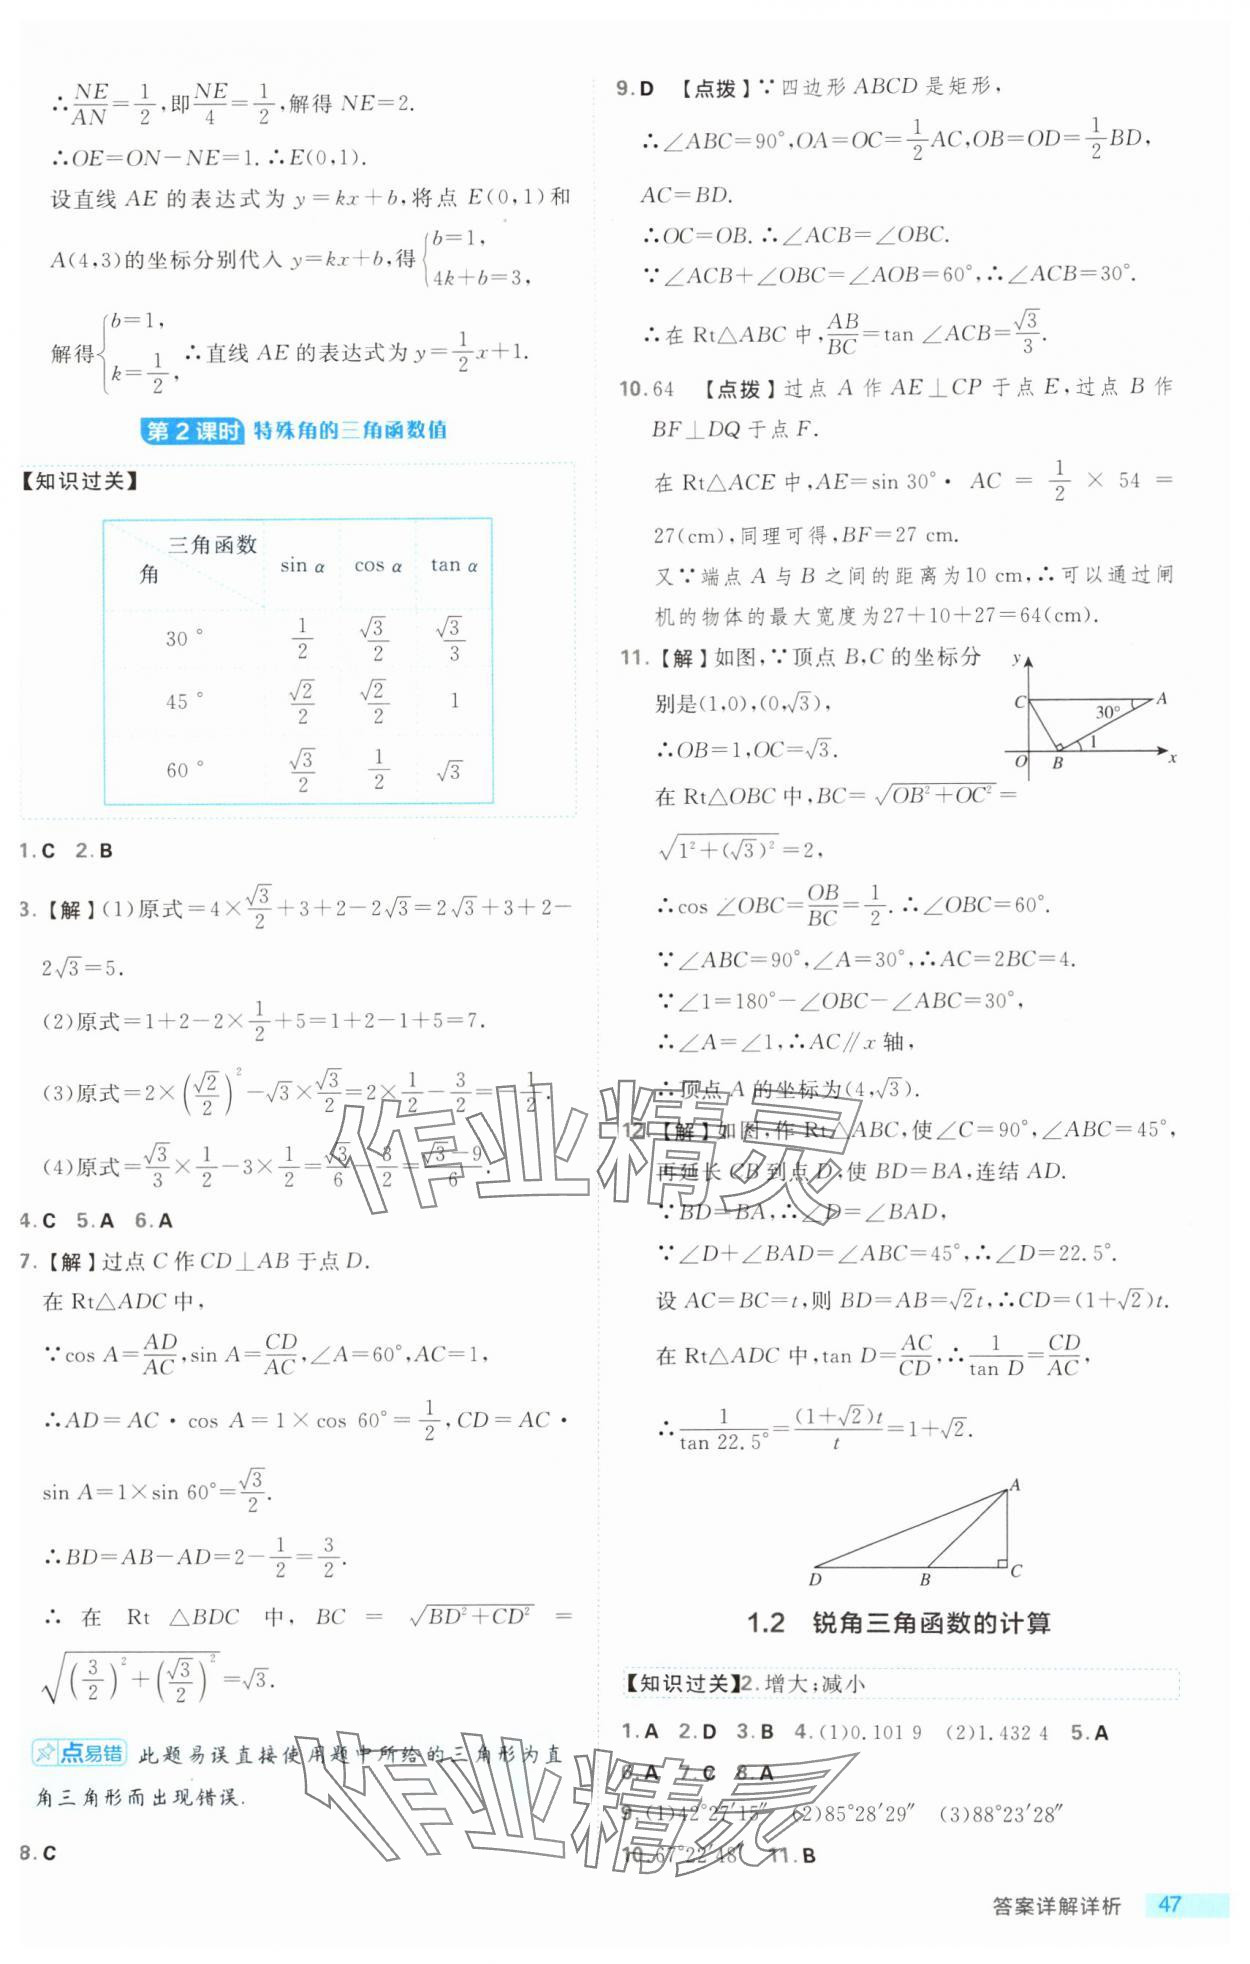 ∴NE/AN=1/2,即NE/4=1/2,解得 NE=2.
∴OE=ON−NE=1.∴E(0,1).
设直线 AE 的表达式为 y=kx+b,将点 E(0,1)和
A(4,3)的坐标分别代入 y=kx+b,得{b=1, 4k+b=3,
解得{b=1, k=1/2, ∴直线 AE 的表达式为 y=1/2x+1.
第2课时 特殊角的三角函数值
【知识过关】
三角函数 角 sin α cos α tan α
30° 1/2 √3/2 √3/3
45° √2/2 √2/2 1
60° √3/2 1/2 √3
1.C 2.B
3.【解】(1)原式=4×√3/2+3+2−2√3=2√3+3+2−
2√3=5.
(2)原式=1+2−2×1/2+5=1+2−1+5=7.
(3)原式=2×(√2/2)²−√3×√3/2=2×1/2−3/2=−1/2.
(4)原式=√3/3×1/2−3×1/2=√3/6−3/2=√3−9/6.
4.C 5.A 6.A
7.【解】过点 C 作 CD⊥AB 于点 D.
在 Rt△ADC 中,
∵cos A=AD/AC,sin A=CD/AC,∠A=60°,AC=1,
∴AD=AC·cos A=1×cos 60°=1/2,CD=AC·
sin A=1×sin 60°=√3/2.
∴BD=AB−AD=2−1/2=3/2.
∴在 Rt △BDC 中, BC = √(BD²+CD²) =
√((3/2)²+(√3/2)²)=√3.
点易错 此题易误直接使用题中所给的三角形为直
角三角形而出现错误.
8.C
9.D 【点拨】∵四边形 ABCD 是矩形,
∴∠ABC=90°,OA=OC=1/2AC,OB=OD=1/2BD,
AC=BD.
∴OC=OB.∴∠ACB=∠OBC.
∵∠ACB+∠OBC=∠AOB=60°,∴∠ACB=30°.
∴在 Rt△ABC 中,AB/BC=tan ∠ACB=√3/3.
10.64 【点拨】过点 A 作 AE⊥CP 于点 E,过点 B 作
BF⊥DQ 于点 F.
在 Rt△ACE 中,AE=sin 30°· AC = 1/2 × 54 =
27(cm),同理可得,BF=27 cm.
又∵端点 A 与 B 之间的距离为10 cm,∴可以通过闸
机的物体的最大宽度为27+10+27=64(cm).
11.【解】如图,∵顶点 B,C 的坐标分
别是(1,0),(0,√3),
∴OB=1,OC=√3.
y C A 30° 1 O B x
在 Rt△OBC 中,BC= √(OB²+OC²)=
√(1²+(√3)²)=2,
∴cos ∠OBC=OB/BC=1/2.∴∠OBC=60°.
∵∠ABC=90°,∠A=30°,∴AC=2BC=4.
∵∠1=180°−∠OBC−∠ABC=30°,
∴∠A=∠1,∴AC∥x 轴,
∴顶点 A 的坐标为(4,√3).
12.【解】如图,作 Rt△ABC,使∠C=90°,∠ABC=45°,
再延长 CB 到点 D,使 BD=BA,连结 AD.
∵BD=BA,∴∠D=∠BAD,
∵∠D+∠BAD=∠ABC=45°,∴∠D=22.5°.
设 AC=BC=t,则 BD=AB=√2t,∴CD=(1+√2)t.
在 Rt△ADC 中,tan D=AC/CD,∴1/tan D=CD/AC,
∴1/tan 22.5°=(1+√2)t/t=1+√2.
A D B C
1.2 锐角三角函数的计算
【知识过关】2.增大;减小
1.A 2.D 3.B 4.(1)0.101 9 (2)1.432 4 5.A
6.A 7.C 8.A
9.(1)42°27′15″ (2)85°28′29″ (3)88°23′28″
10.67°22′48″ 11.B
答案详解详析 47
作业精灵
作业精灵